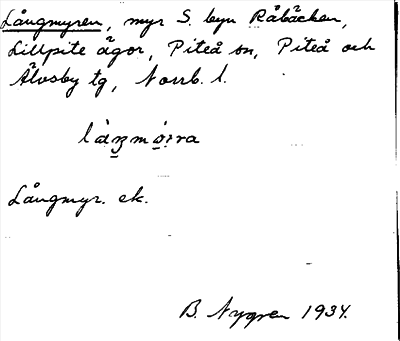 Långmyren, myr S. byn Råbäcken,
Lillpite ägor, Piteå sn, Piteå och
Älvsby tg, Norrb. l.
Långmyr. ek.
B. Nygren 1934.